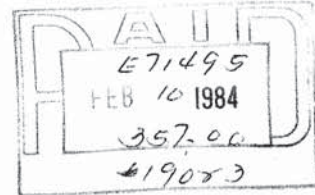 PAID
E71495
FEB 10 1984
357.00